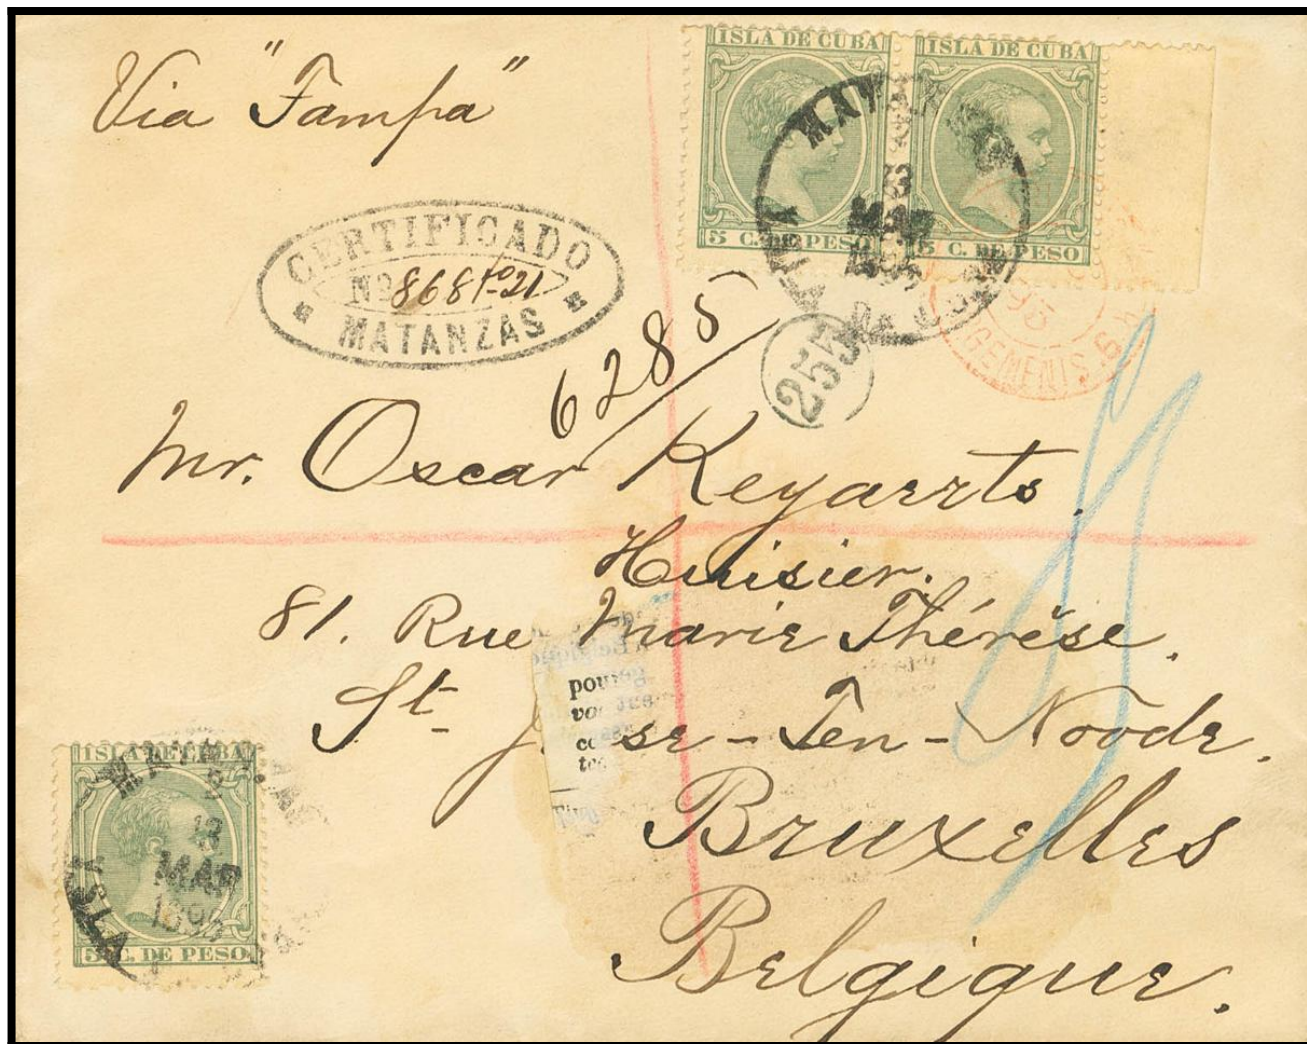 Via "Tampa"
ISLA DE CUBA
ISLA DE CUBA
5 C. DE PESO
5 C. DE PESO
MAR
CERTIFICADO
Nº 8681
MATANZAS
6285
255
95
GEMENTS. 6
Mr. Oscar Keyaerts.
Huisier.
81. Rue Marie Thérèse.
St- J sse-Ten-Noode.
Bruxelles
Belgique.
ISLA DE CUBA
MAR
5 C. DE PESO